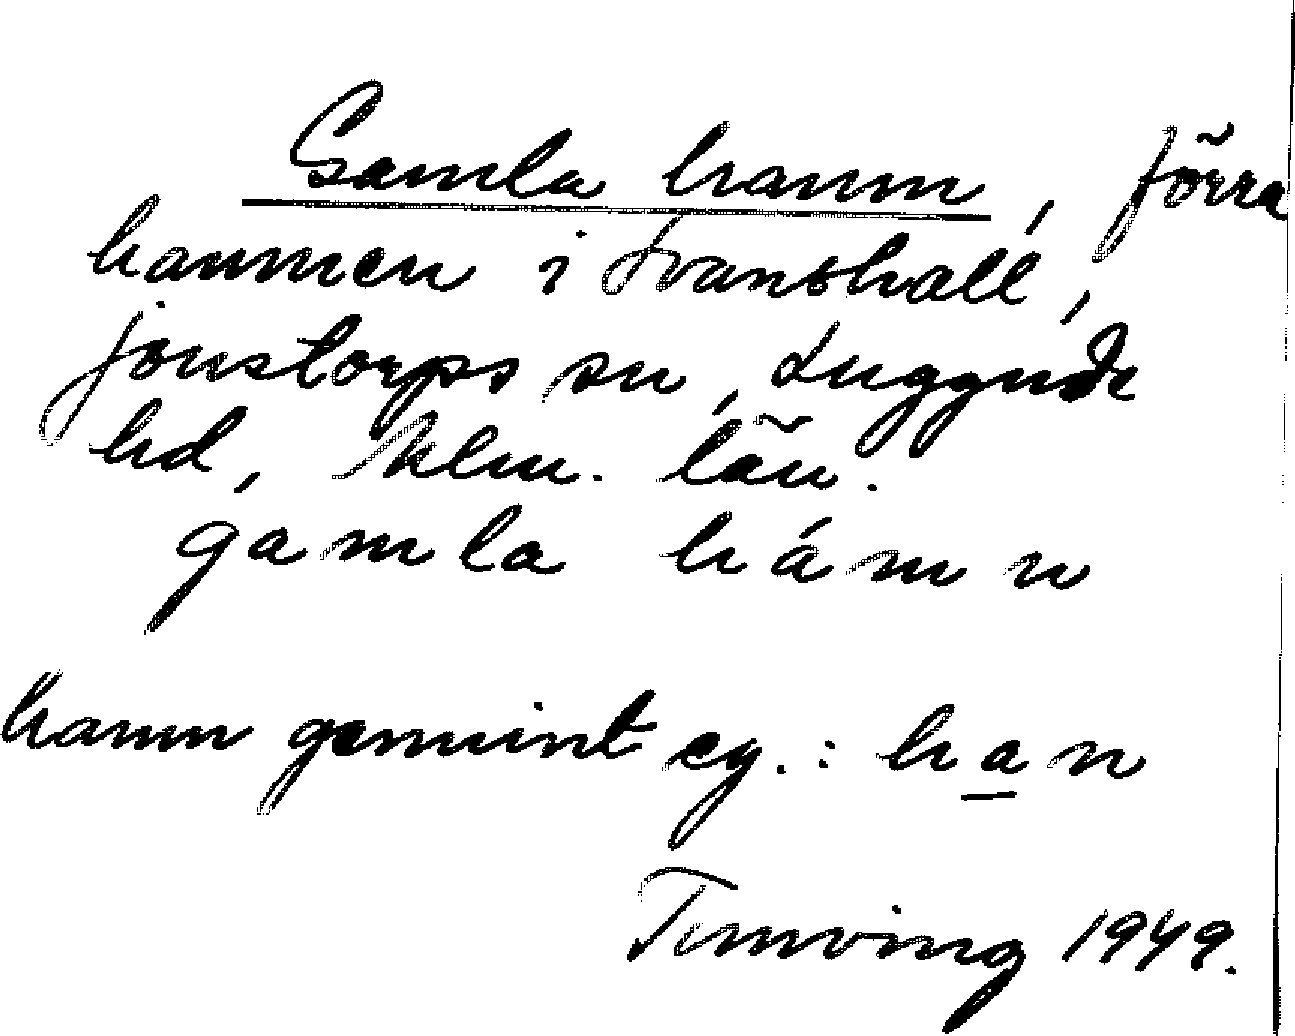 Gamla hamn, förra
hamnen i Svanshall,
Jonstorps sn, Luggude
hd, Mlm. län.
gamla hámn
hamn gemint ey.: han
Ternving 1949.